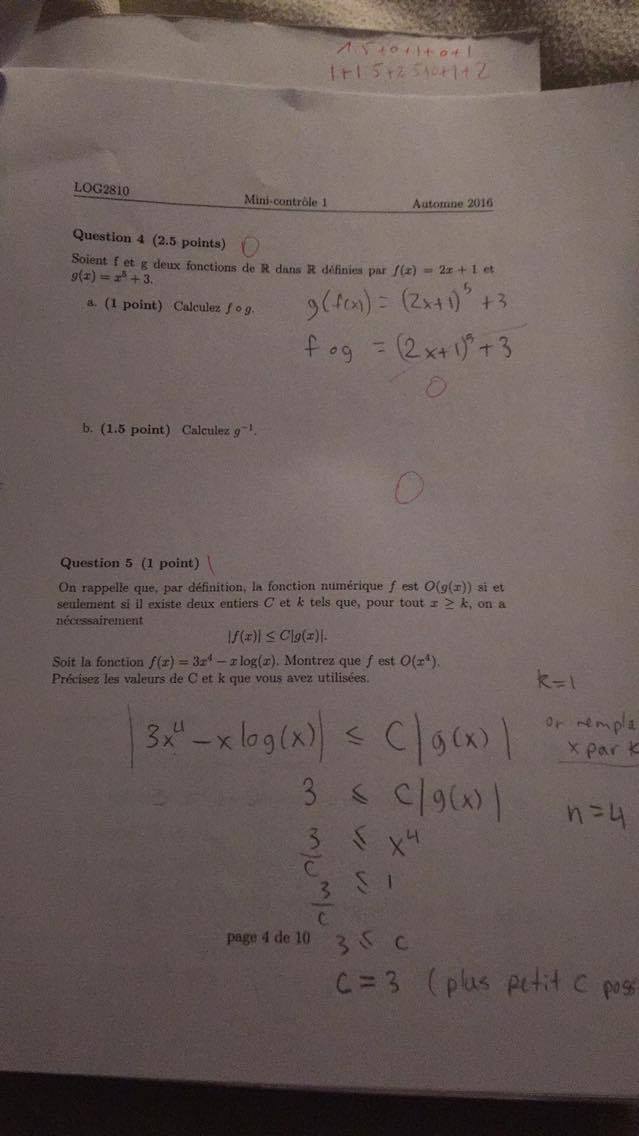 1.5+0+1+0+1
1+1.5+2.5+0+1+2
LOG2810
Mini-contrôle 1
Automne 2016
Question 4 (2.5 points) 0
Soient f et g deux fonctions de ℝ dans ℝ définies par f(x) = 2x + 1 et
g(x) = x⁵ + 3.
a. (1 point) Calculez f ∘ g.
g(f(x)) = (2x+1)⁵ + 3
f o g = (2x+1)⁵ + 3
0
b. (1.5 point) Calculez g⁻¹.
0
Question 5 (1 point) 1
On rappelle que, par définition, la fonction numérique f est O(g(x)) si et
seulement si il existe deux entiers C et k tels que, pour tout x ≥ k, on a
nécessairement
|f(x)| ≤ C|g(x)|.
Soit la fonction f(x) = 3x⁴ − x log(x). Montrez que f est O(x⁴).
Précisez les valeurs de C et k que vous avez utilisées.
k=1
|3x⁴ − x log(x)| ≤ C|g(x)|
or rempla
x par k
3 ≤ C|g(x)|
n=4
3/C ≤ x⁴
3/C ≤ 1
page 4 de 10
3 ≤ C
C = 3 (plus petit C poss